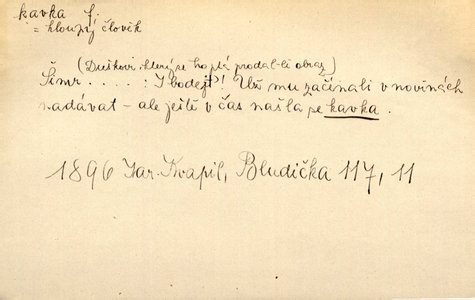 kavka f.
= hloupý člověk
(Duškovi, který se ho ptá prodal-li obraz)
Šimr . . . . : I bodejť! Už mu začínali v novinách
nadávat – ale ještě v čas našla se kavka.
1896 Jar. Kvapil, Bludička 117, 11